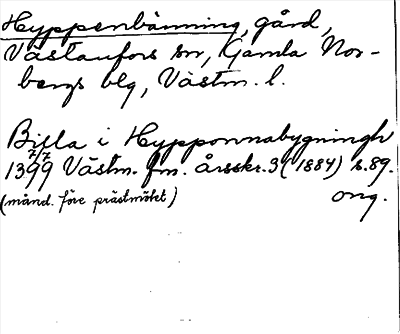 Hyppenbänning, gård,
Västanfors sn, Gamla Nor-
bergs blg, Västm. l.
Billa i Hypponnabygningh
1399 Västm. fm. årsskr. 3 (1884) s. 89.
(månd. före prästmötet) orig.